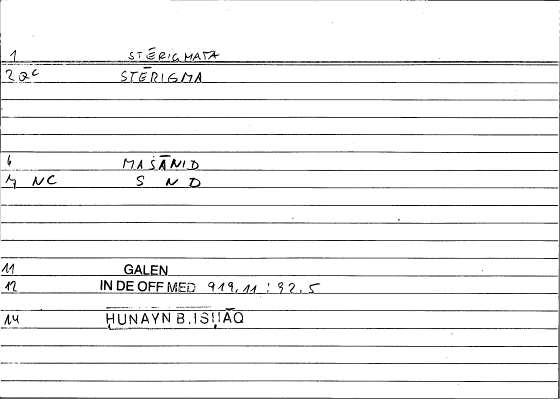 1 STĒRIGMATA
2 QC STĒRIGMA
6 MASĀNID
7 NC S N D
11 GALEN
12 IN DE OFF MED 919,11 : 92.5
14 ḤUNAYN B. ISḤĀQ